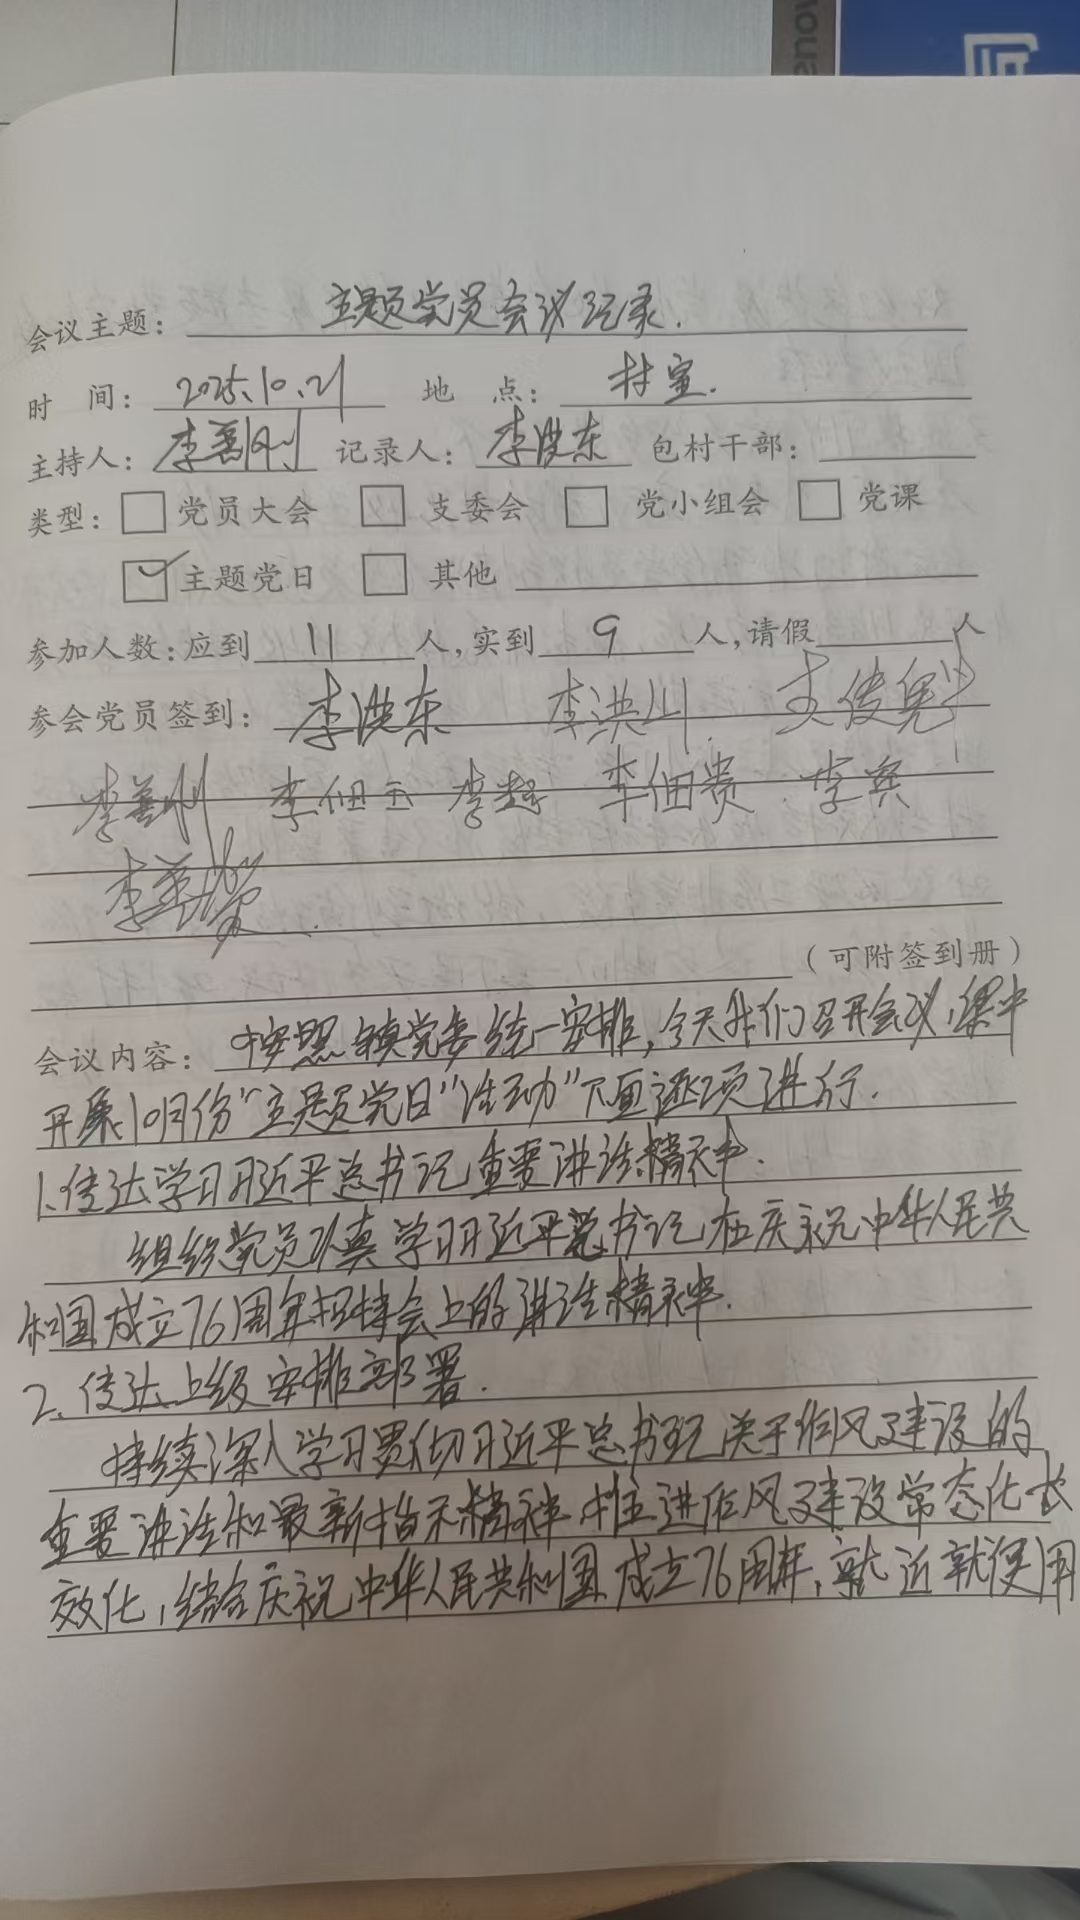 vous
会议主题：主题党员会议记录.
时 间：2025.10.21 地 点：村室.
主持人：李善刚 记录人：李洪东 包村干部：
类型：□党员大会 □支委会 □党小组会 □党课
☑主题党日 □其他
参加人数：应到 11 人，实到 9 人，请假 人
参会党员签到：李洪东 李洪川.
李善刚 李佃玉 李 李佃贵 李宾
李善
（可附签到册）
会议内容：按照镇党委统一安排，今天我们召开会议，集中
开展10月份“主题党日”活动”下面逐项进行.
1.传达学习习近平总书记重要讲话精神.
组织党员认真学习习近平总书记在庆祝中华人民共
和国成立76周年招待会上的讲话精神.
2.传达上级安排部署.
持续深入学习贯彻习近平总书记关于作风建设的
重要讲话和最新指示精神.推进作风建设常态化长
效化，结合庆祝中华人民共和国成立76周年，就近就便用